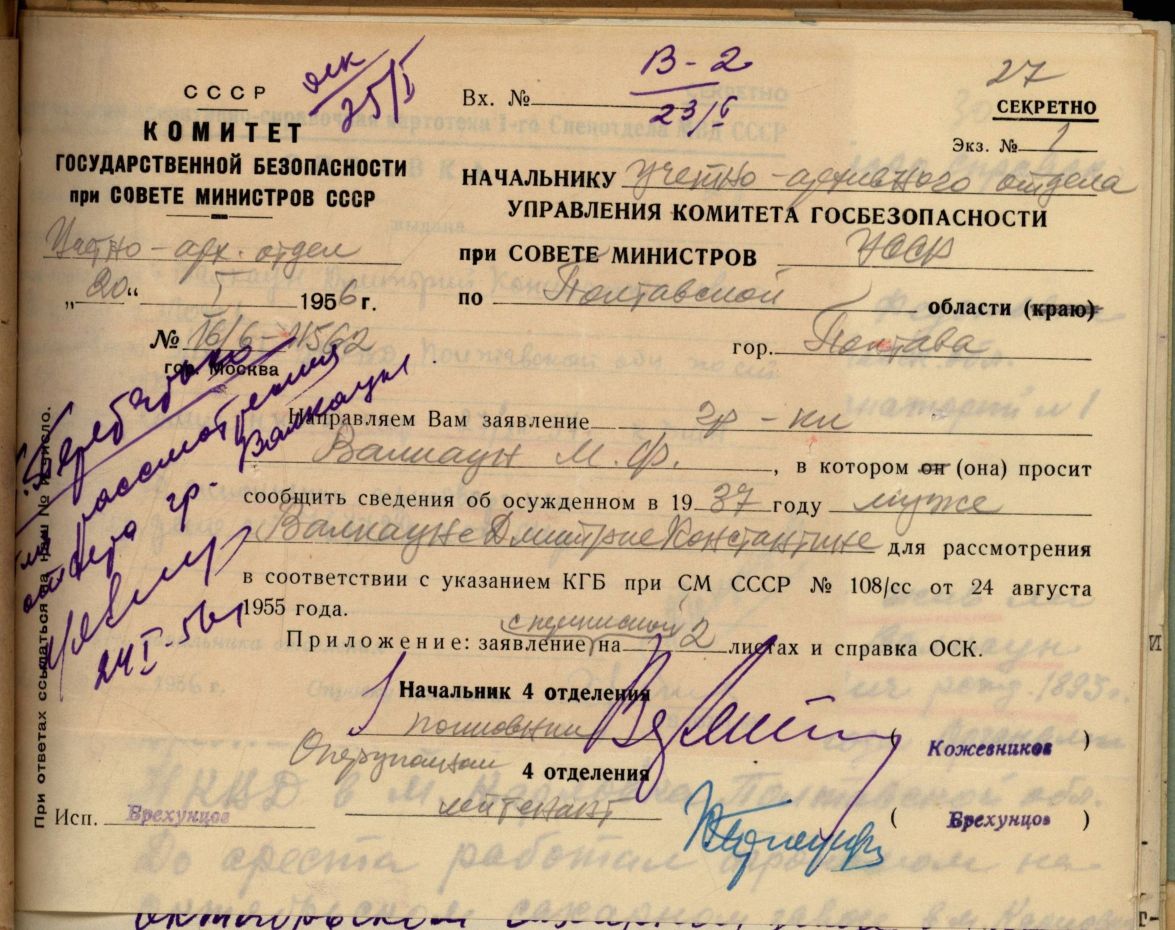 27
СЕКРЕТНО
Экз. № 1
СССР
КОМИТЕТ
ГОСУДАРСТВЕННОЙ БЕЗОПАСНОСТИ
при СОВЕТЕ МИНИСТРОВ СССР
Учетно-арх. отдел
„20“ V 1956 г.
№ 16/6-
гор. Москва
оск
25/V
Вх. № В-2
23/V
НАЧАЛЬНИКУ Учетно-архивного отдела
УПРАВЛЕНИЯ КОМИТЕТА ГОСБЕЗОПАСНОСТИ
при СОВЕТЕ МИНИСТРОВ УССР
по Полтавской области (краю)
гор. Полтава
рассмотрения
гр.
Направляем Вам заявление гр-ки
Валкаун М. Ф., в котором он (она) просит
сообщить сведения об осужденном в 1937 году муже
Валкауне Дмитрие Константине для рассмотрения
в соответствии с указанием КГБ при СМ СССР № 108/сс от 24 августа
1955 года.
с перепиской
Приложение: заявление на 2 листах и справка ОСК.
Начальник 4 отделения
полковник
( Кожевников )
Оперуполном 4 отделения
лейтенант
( Брехунцов )
Исп. Брехунцов
При ответах ссылаться на наш № и число.
НКВД в м. Карловка Полтавской обл.
До ареста работал на
октябрьском сахарном заводе в м.